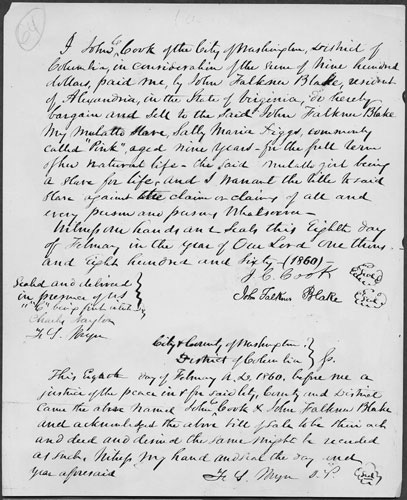 64
I John C. Cook of the City of Washington, District of
Columbia, in consideration of the sum of Nine hundred
dollars, paid me, by John Falkner Blake, resident
of Alexandria, in the State of Virginia, do hereby
bargain and sell to the said John Falkner Blake
My Mulatto Slave, Sally Maria Diggs, commonly
called "Pink", aged nine years - for the full term
of her natural life - the said mulatto girl being
a slave for life, and I warrant the title to said
slave against the claim or claims of all and
every person and persons whatsoever -
Witness our hands and Seals this Eighth day
of February in the year of Our Lord One thous-
and Eight hundred and Sixty - (1860) -
J. C. Cook Seal
John Falkner Blake Seal
Sealed and delivered
in presence of us
"C" being first
Charles
City & County of Washington
District of Columbia } Ss.
This Eighth day of February A.D. 1860, before me a
justice of the peace in & for said City, County and District
came the above named John C. Cook & John Falkner Blake
and acknowledged the above bill of sale to be their act
and deed and desired the same might be recorded
as such. Witness my hand and seal the day and
year aforesaid
J.P. Seal